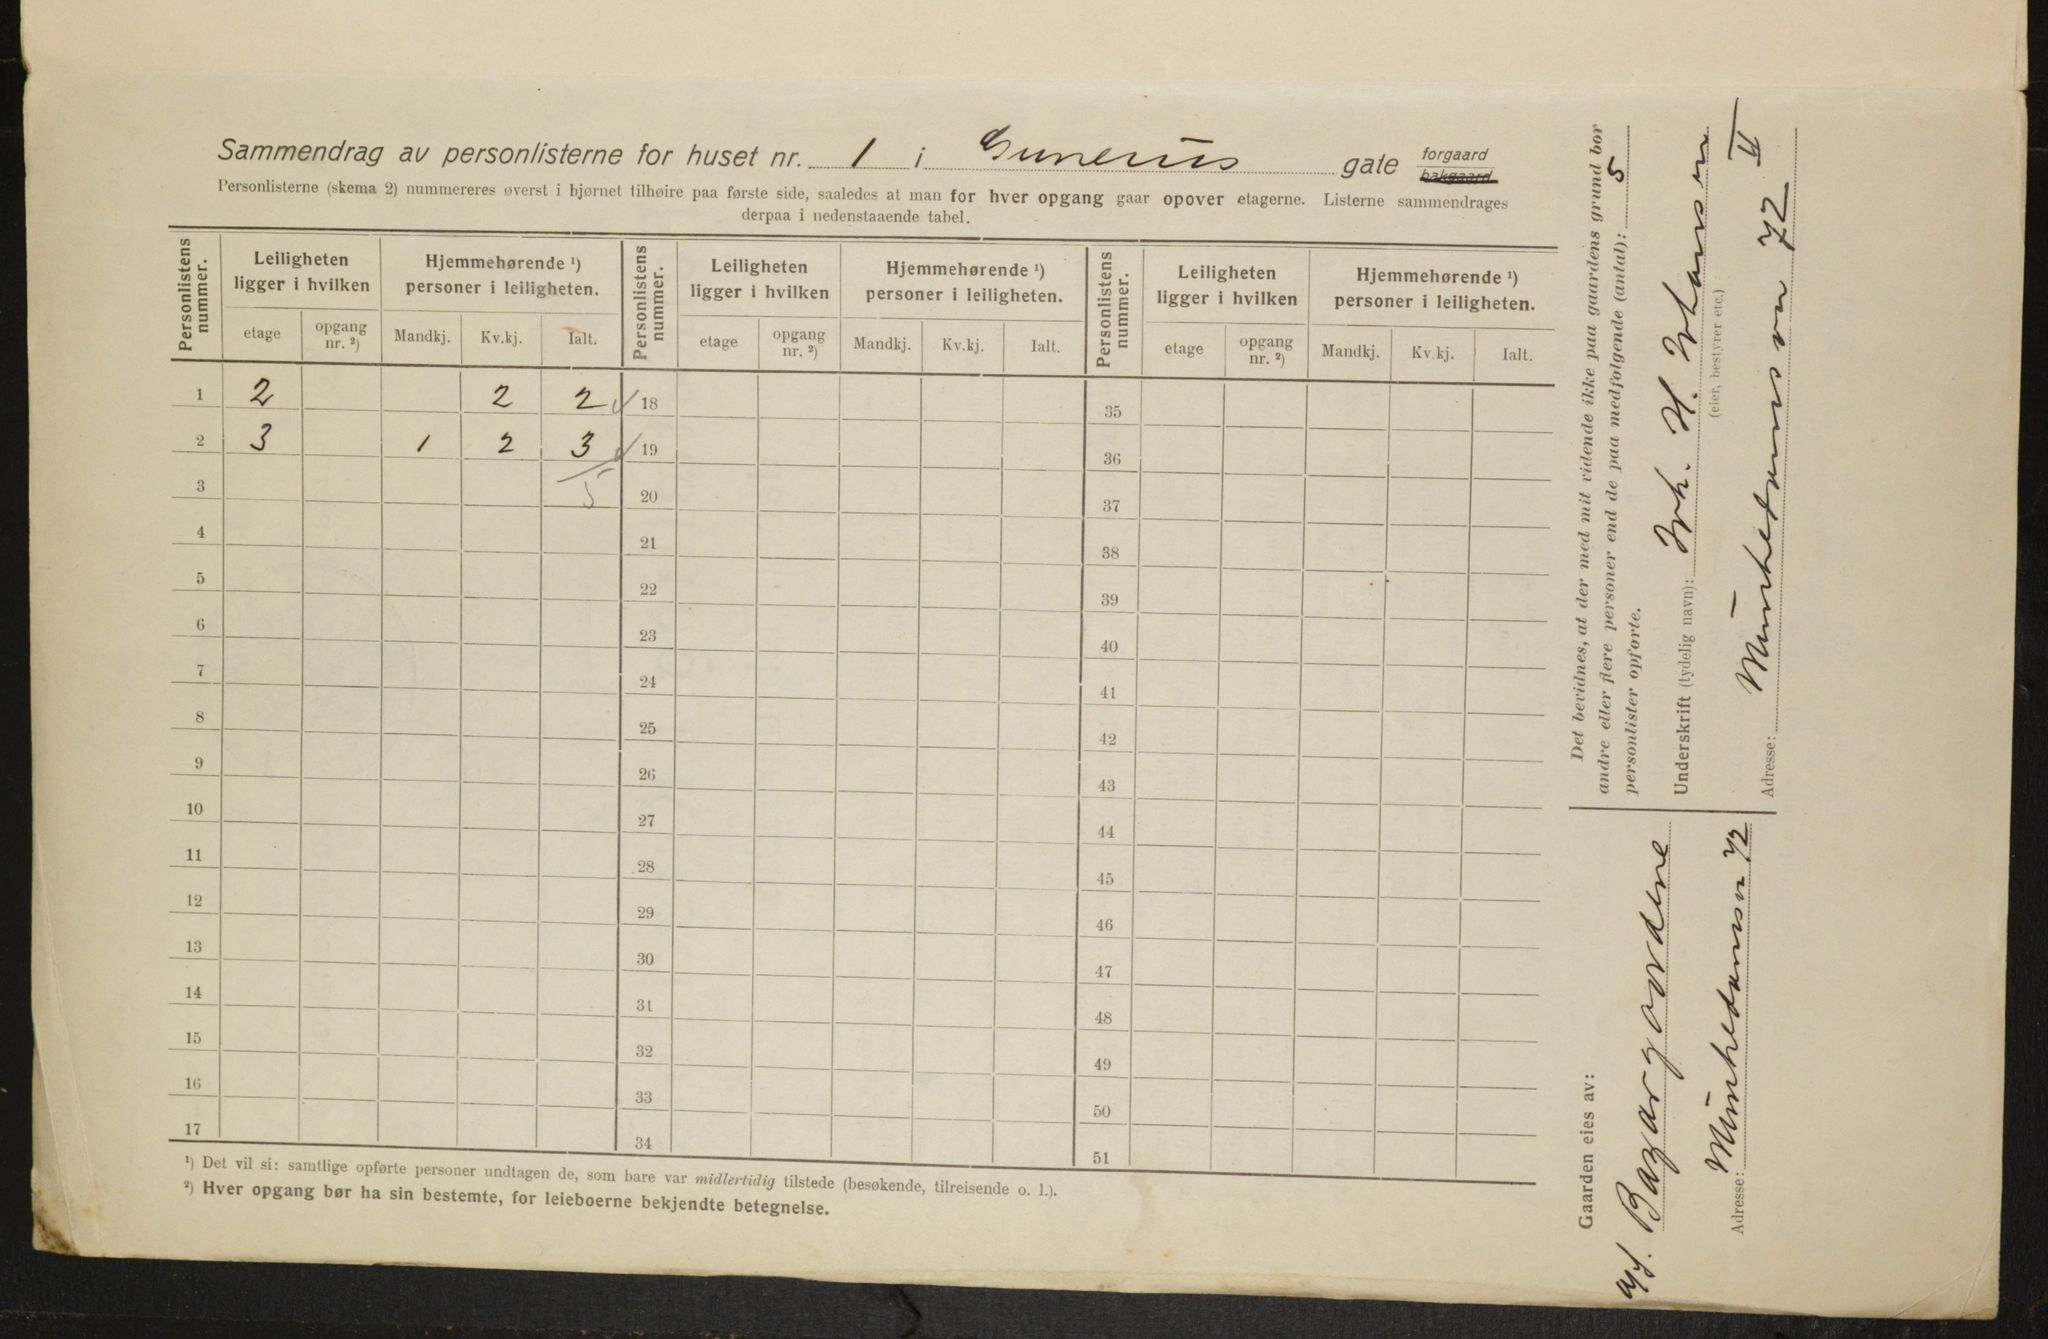 Sammendrag av personlisterne for huset nr. 1 i Gunerius gate forgaard bakgaard
Personlisterne (skema 2) nummereres øverst i hjørnet tilhøire paa første side, saaledes at man for hver opgang gaar opover etagerne. Listerne sammendrages
derpaa i nedenstaaende tabel.
Personlistens nummer. Leiligheten ligger i hvilken Hjemmehørende ¹) personer i leiligheten. Personlistens nummer. Leiligheten ligger i hvilken Hjemmehørende ¹) personer i leiligheten. Personlistens nummer. Leiligheten ligger i hvilken Hjemmehørende ¹) personer i leiligheten.
etage opgang nr. ²) Mandkj. Kv.kj. Ialt. etage opgang nr. ²) Mandkj. Kv.kj. Ialt. etage opgang nr. ²) Mandkj. Kv.kj. Ialt.
1 2 2 2 18 35
2 3 1 2 3 19 36
3 5 20 37
4 21 38
5 22 39
6 23 40
7 24 41
8 25 42
9 26 43
10 27 44
11 28 45
12 29 46
13 30 47
14 31 48
15 32 49
16 33 50
17 34 51
¹) Det vil si: samtlige opførte personer undtagen de, som bare var midlertidig tilstede (besøkende, tilreisende o. l.).
²) Hver opgang bør ha sin bestemte, for leieboerne bekjendte betegnelse.
Det bevidnes, at der med mit vidende ikke paa gaardens grund bor
andre eller flere personer end de paa medfølgende (antal): 5
personlister opførte.
Underskrift (tydelig navn): Joh. H. Johansen
(eier, bestyrer etc.)
Adresse: Munkedamsvn 72 II
Gaarden eies av:
A/S. Bazargaardene
Adresse: Munkedamsvn 72